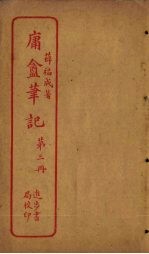 薛福成著
庸盦筆記
第三冊
進步書
局校印